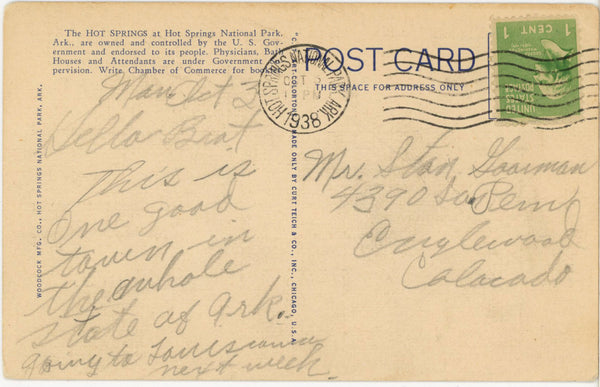 The HOT SPRINGS at Hot Springs National Park,
Ark., are owned and controlled by the U. S. Gov-
ernment and endorsed to its people. Physicians, Bath
Houses and Attendants are under Government
pervision. Write Chamber of Commerce for
Mon Oct 3
Hello Brat.
This is
one good
town in
the whole
state of Ark.
Going to Louisiana
next week.
WOODCOCK MFG. CO., HOT SPRINGS NATIONAL PARK, ARK.
MADE ONLY BY CURT TEICH & CO., INC., CHICAGO, U.S.A.
POST CARD
THIS SPACE FOR ADDRESS ONLY
HOT SPRINGS NATIONAL PARK ARK
1938
1 CENT 1
UNITED
STATES
POSTAGE
Mr. Stan Goorman
4390 So.
Englewood
Colorado